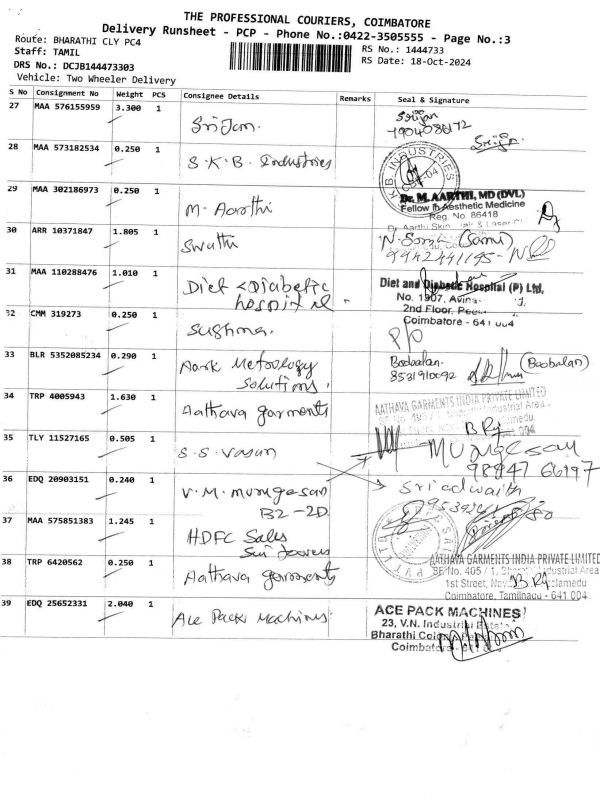 THE PROFESSIONAL COURIERS, COIMBATORE
Delivery Runsheet - PCP - Phone No.:0422-3505555 - Page No.:3
Route: BHARATHI CLY PC4
RS No.: 1444733
Staff: TAMIL
RS Date: 18-Oct-2024
DRS No.: DCJB144473303
Vehicle: Two Wheeler Delivery
S No Consignment No Weight PCS Consignee Details Remarks Seal & Signature
27 MAA 576155959 3.300 1 Srijan. Srijan
7904086172
28 MAA 573182534 0.250 1 S.K.B. Industries
K.B. INDUSTRIES
29 MAA 302186973 0.250 1 M. Aarthi
Dr. M. AARTHI, MD (DVL)
Fellow in Aesthetic Medicine
Reg. No. 86418
Dr. Aarthi Skin
30 ARR 10371847 1.805 1 Swathi
9942441195
31 MAA 110288476 1.010 1 Diet & Diabetic
hospital
Diet and Diabetic Hospital (P) Ltd,
No. 1907,
2nd Floor,
Coimbatore - 641 004
32 CMM 319273 0.250 1 Sushma. P/O
33 BLR 5352085234 0.290 1 Aark Metrology
Solutions.
Boobalan. (Boobalan)
8531910092
34 TRP 4005943 1.630 1 Aathava garments
AATHAVA GARMENTS INDIA PRIVATE LIMITED
Industrial Area,
004
35 TLY 11527165 0.505 1 S.S. Vasan
Murugesan
98947 66197
36 EDQ 20903151 0.240 1 V.M. Murugesan
B2-2D.
Sri adwaith
37 MAA 575851383 1.245 1 HDFC Sales
38 TRP 6420562 0.250 1 Aathava garments
AATHAVA GARMENTS INDIA PRIVATE LIMITED
SF No. 405 / 1, Industrial Area
1st Street,
Coimbatore, Tamilnadu - 641 004.
39 EDQ 25652331 2.040 1 Ace Pack Machines
ACE PACK MACHINES
23, V.N. Industrial Estate
Bharathi Colony
Coimbatore